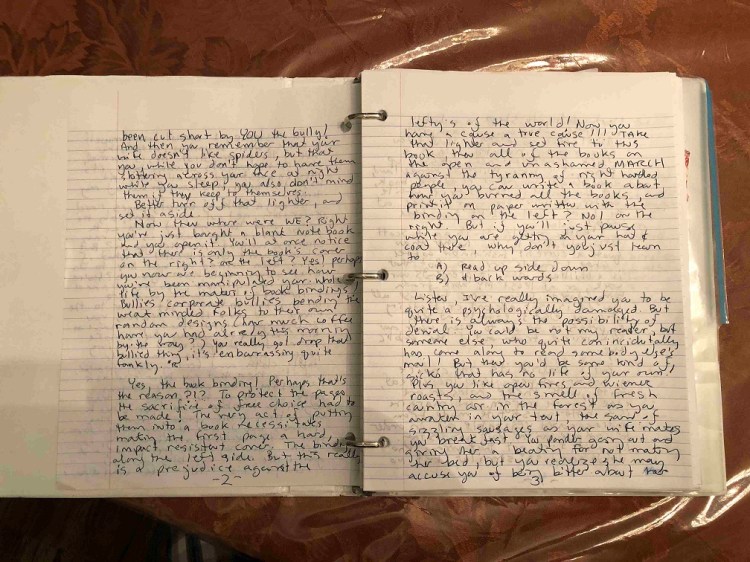 been cut short by YOU the bully!
And then you remember that your
wife doesn't like spiders, but that
you, while you don't hope to have them
tottering across your face at night
while you sleep, you also don't mind
them if they keep to themselves.
Better turn off that lighter, and
set it aside.
Now then where were WE? Right
you're just bought a blank note book
and you open it. You'll at once notice
that there is only the book's cover
on the right? on the left? Yes! perhaps
you now are beginning to see how
you've been manipulated your whole
life by the makers of book bindings,
Bullies, corporate bullies bending the
weak minded folks to their own
random designs (how much coffee
have you had already this morning
by the way?) You really got drop that
bullied thing, it's embarrassing quite
frankly.
Yes the book binding! Perhaps that's
the reason?!? To protect the pages
the sacrifice of free choice had to
be made! The very act of putting
them into a book necessitates
making the first page a hard
impact resistant cover. The binding
along the left side. But this really
is a prejudice against the
-2-
lefty's of the world! Now you
have a cause a true cause!!! TAKE
that lighter and set fire to this
book then all of the books on
the open and unashamed MARCH
against the tyranny of right handed
people, you can write a book about
how you burned all the books, and
print it on paper written with the
binding on the left? No! on the
right. But if you'll just pause
while you are getting on your hat &
coat there, why don't you just learn
to
A) Read up side down
B) back words
Listen, I've really imagined you to be
quite a psychologically damaged. But
there is always the possibility of
denial. You could be not my reader, but
someone else, who quite coincidentally
has come along to read somebody else's
mail! But then you'd be some kind of
sicko that has no life of your own!
Plus you like open fires and wiener
roasts, and the smell of fresh
country air in the forest as you
awaken in your tent the sound of
sizzling sausages as your wife makes
you breakfast. You ponder going out and
giving her a beating for not making
her bed, but you realize she may
accuse you of being bitter about
3